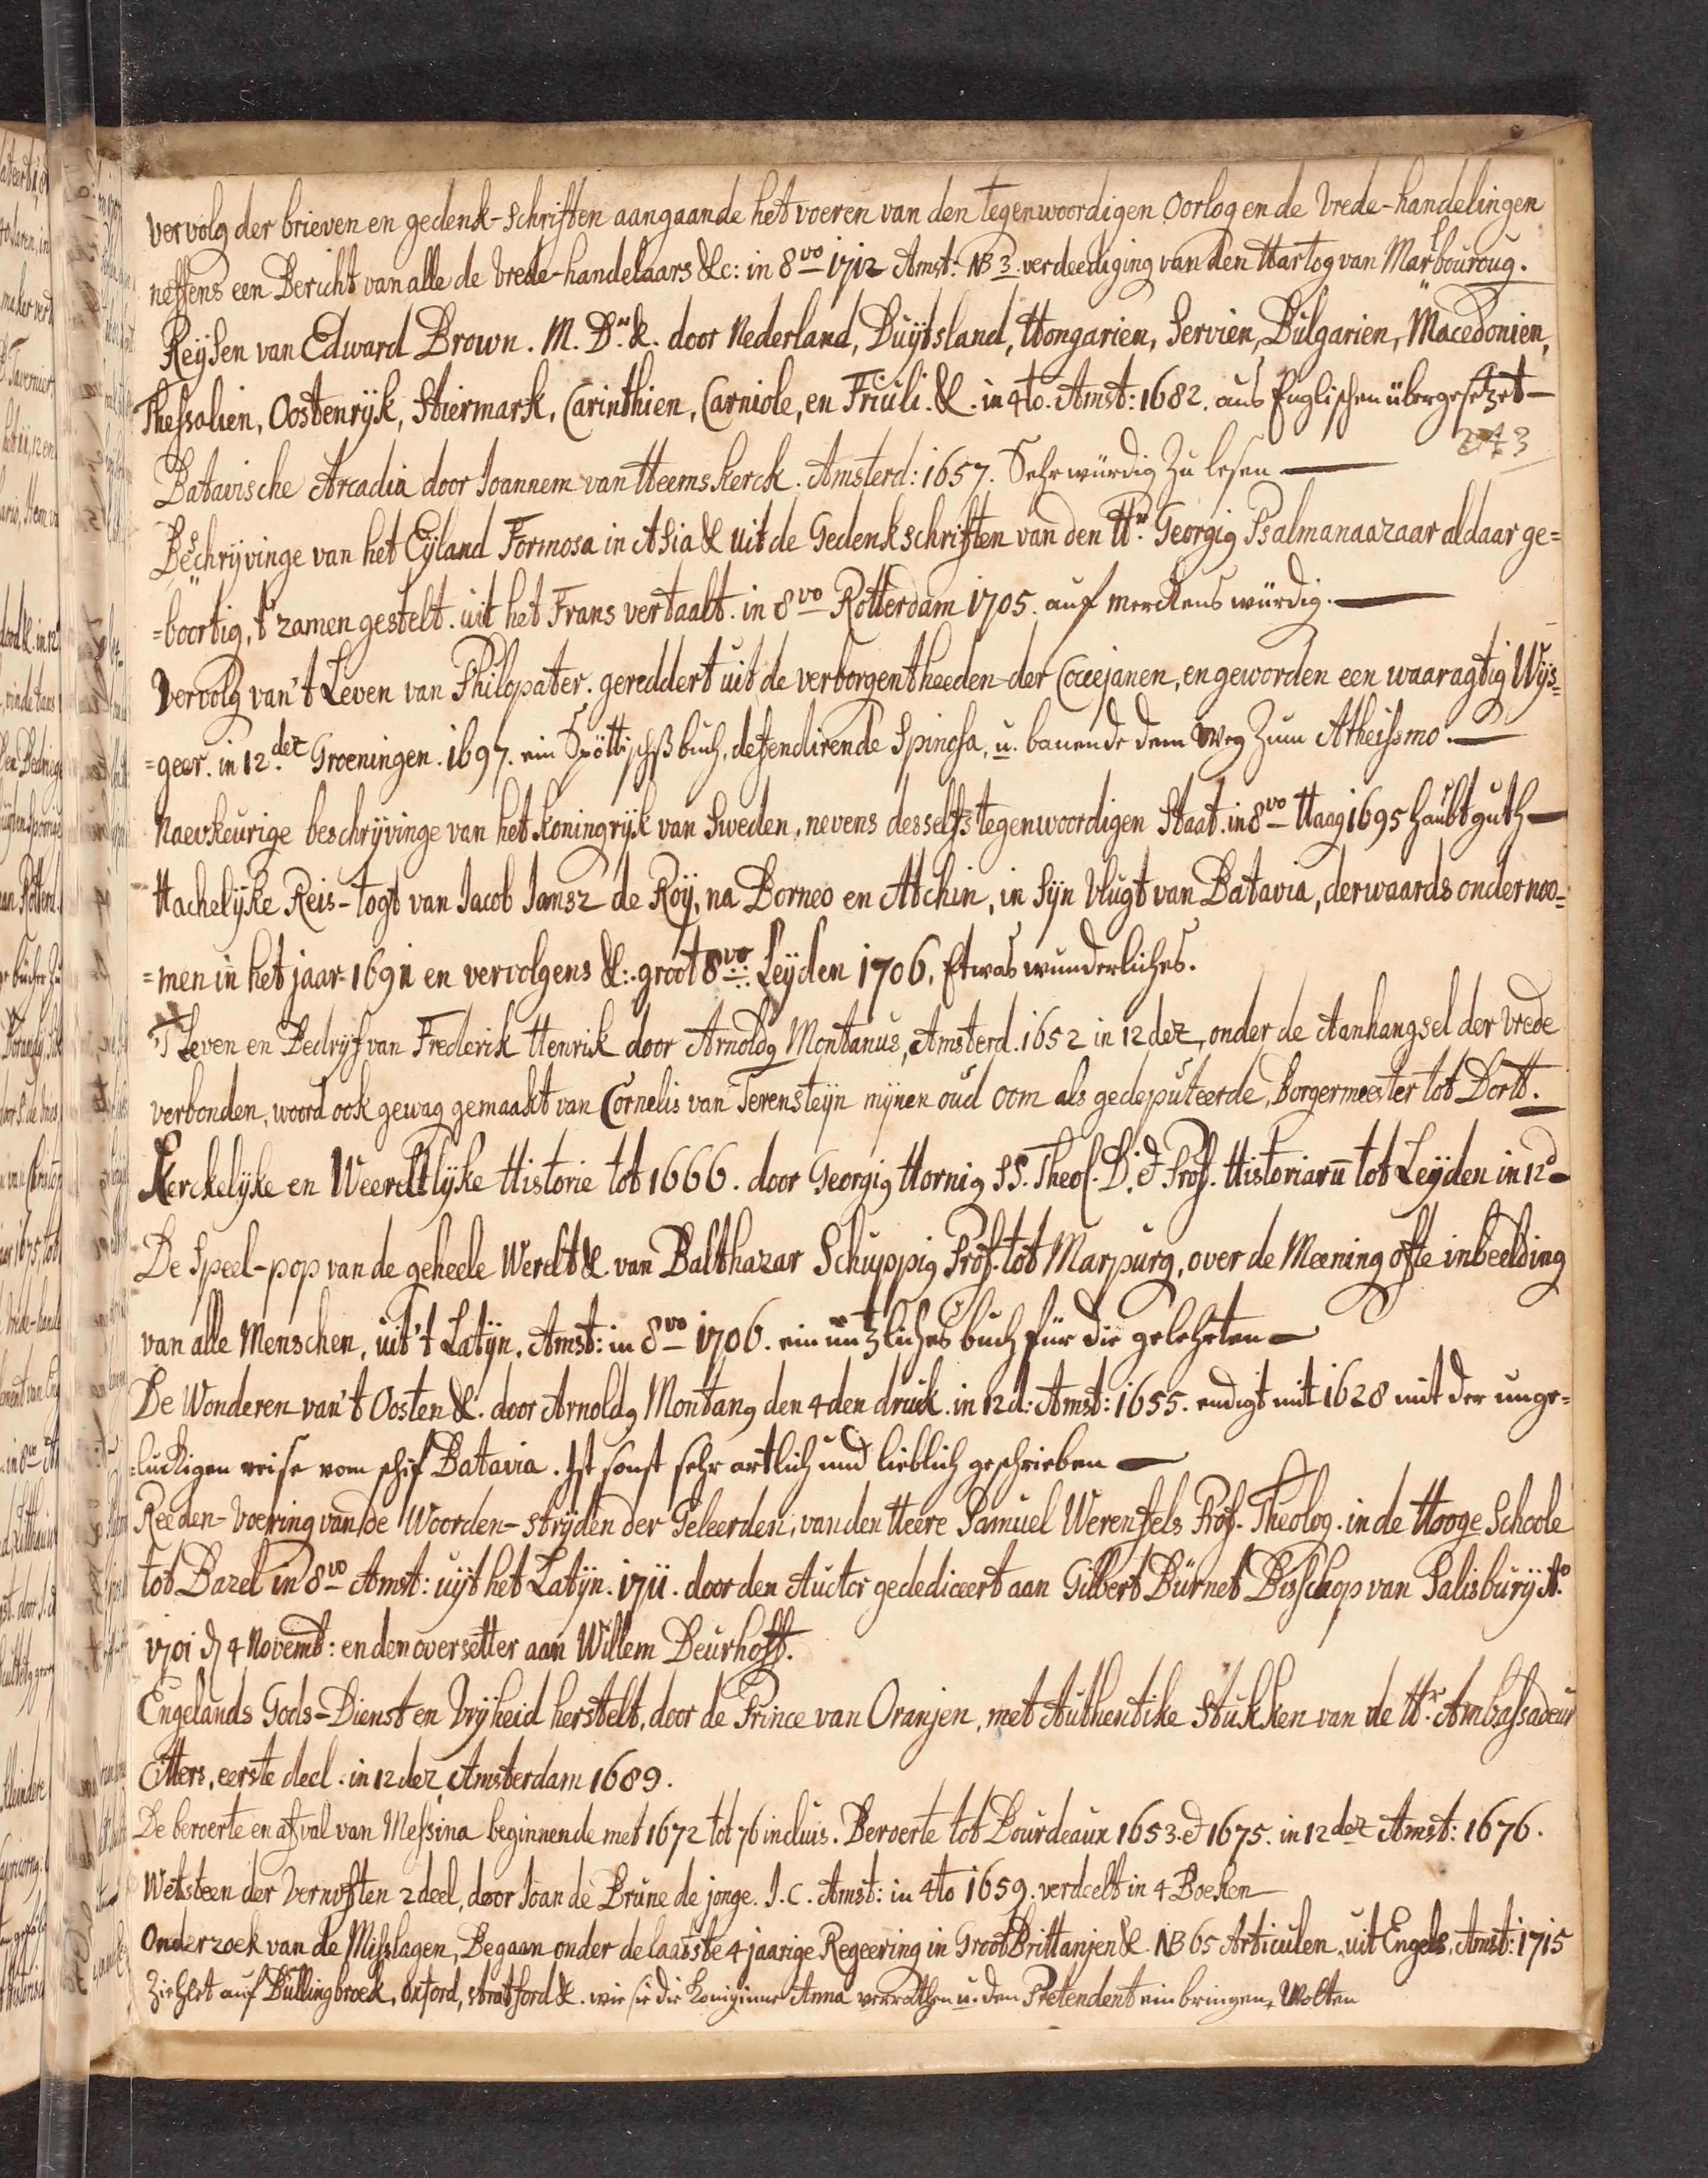 Vervolg der brieven en gedenk-schriften aangaande het voeren van den tegenwoordigen Oorlog en de Vrede-handelingen
neffens een Bericht van alle de Vrede-handelaars &c: in 8vo 1712 Amst: NB 3. verdeediging van den Hartog van Marbouroug.
Reysen van Edward Brown. M. Dr. &. door Nederland, Duytsland, Hongarien, Servien, Bulgarien, Macedonien,
Thessalien, Oostenryk, Stiermark, Carinthien, Carniole, en Friuli. &. in 4to. Amst: 1682. aus Englischen übergesetzet —
243
Batavische Arcadia door Joannem van Heemskerck. Amsterd: 1657. Sehr würdig zu lesen —
Beschryvinge van het Eyland Formosa in Asia & uit de Gedenkschriften van den Hr. Georgig Psalmanaazaar aldaar ge=
=boortig, t'zamen gestelt. uit het Frans vertaalt. in 8vo Rotterdam 1705. auf merckens würdig. —
Vervolg van't Leven van Philopater. gereddert uit de verborgentheeden der Coccejanen, en geworden een waaragtig Wys=
=geer. in 12.dez Groeningen. 1697. ein Spöttisches buch, defendirende Spinosa, u. bauende dem Weg zum Atheismo. —
Naevkeurige beschryvinge van het koningryk van Sweden, nevens desselfs tegenwoordigen Staat. in 8vo Haag 1695 haubt guth —
Hachelyke Reis-togt van Jacob Jansz de Roy, na Borneo en Atchin, in Syn Vlugt van Batavia, derwaards ondernoo=
=men in het jaar 1691 en vervolgens &: groot 8vo: Leyden 1706. Etwas wunderliches.
T Leven en Bedryf van Frederik Henrik door Arnoldg Montanus, Amsterd. 1652 in 12dez, onder de Aanhangsel der Vrede
verbonden, woord ook gewag gemaakt van Cornelis van Terensteyn mynen oud oom als gedeputeerde, borgermeester tot Dortt.
Kerckelyke en Weereltlyke Historie tot 1666. door Georgig Hornig SS. Theol. D. & Prof. Historiarū tot Leyden in 12d
De Speel-pop van de geheele Werelt &. van Balthazar Schuppig Prof. tot Marpurg, over de Meening ofte inbeelding
van alle Menschen, uit't Latyn. Amst: in 8vo 1706. ein nützliches buch für die gelehrten —
De Wonderen van't Oosten &. door Arnoldg Montang den 4den druk. in 12d: Amst: 1655. endigt mit 1628 mit der unge=
=lückigen reise vom schif Batavia. Ist sonst sehr artlich und lieblich geschrieben —
Reeden-Voering van de Woorden-stryden der Geleerden, van den Heere Samuel Werenfels Prof. Theolog. in de Hooge Schoole
tot Bazel in 8vo Amst: uyt het Latyn. 1711. door den Auctor gedediceert aan Gilbert Burnet Bisschop van Salisbury Ao.
1701 4 Novemb: en den oversetter aan Willem Deurhoff.
Engelands Gods-Dienst en Vryheid herstelt, door de Prince van Oranjen, met Authentike Stukken van de Hr. Ambassadeur
Citters, eerste deel. in 12dez Amsterdam 1689.
De beroerte en afval van Messina beginnende met 1672 tot 76 incluis. Beroerte tot Bourdeaux 1653. & 1675. in 12dez Amst: 1676.
Wetsteen der Vernuften 2 deel, door Joan de Brune de jonge. J. C. Amst: in 4to 1659. verdeelt in 4 Boeken —
Onderzoek van de Misslagen, Begaan onder de laatste 4 jaarige Regeering in Groot Brittanjen &. NB 65 Articulen. uit Engels. Amst: 1715
Ziehlet auf Bullingbroek, Oxford, Stratford &. wie sie die Koniginne Anna verrathen u. den Pretendent einbringen, wolten